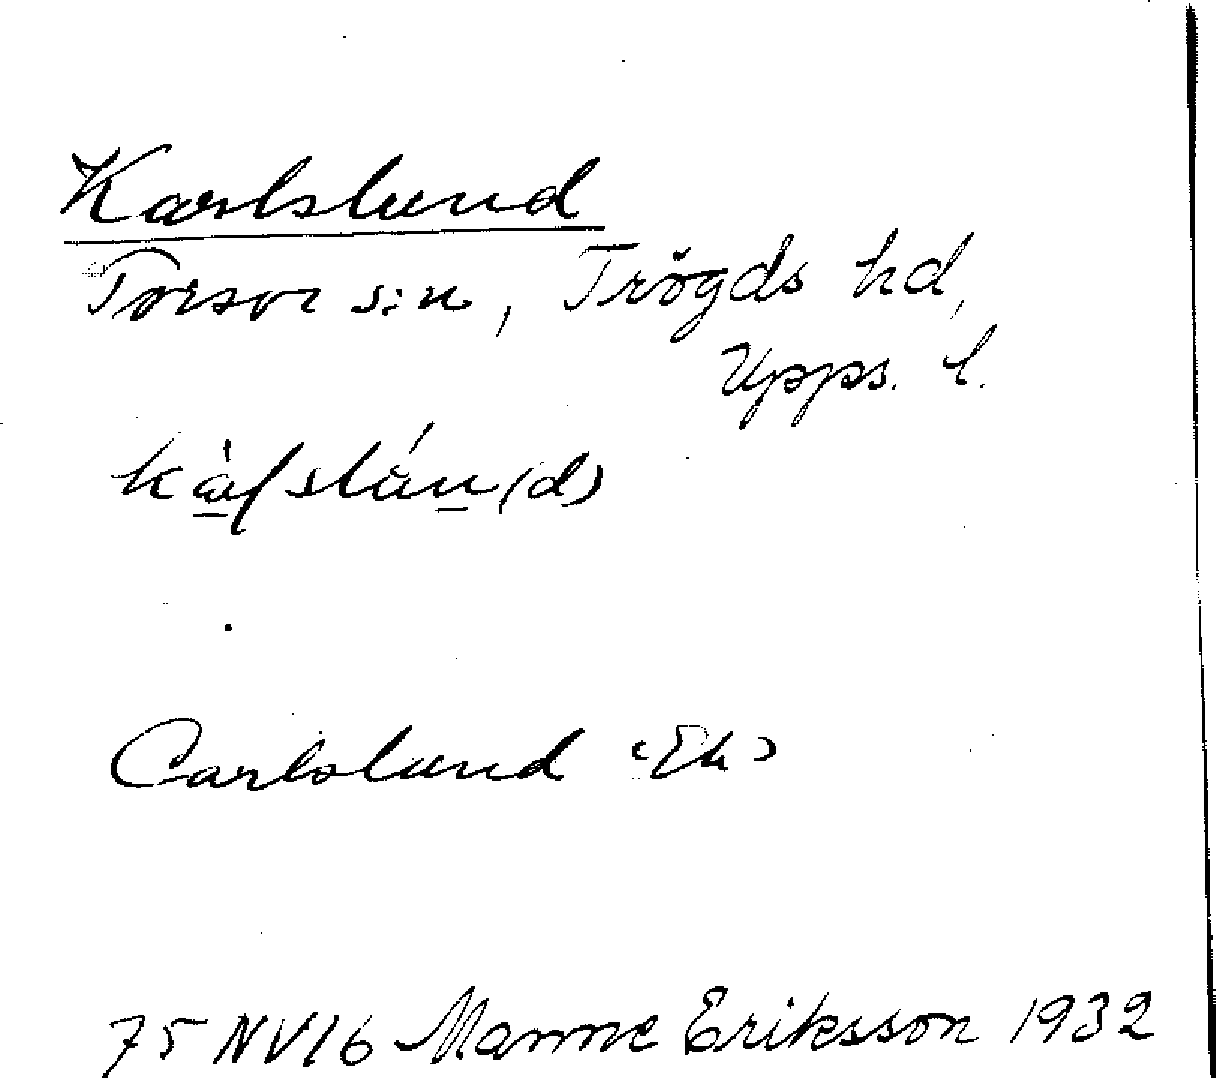 Karlslund
Torsvi sn, Trögds hd,
Upps. l.
Carlslund (Ek)
75 NV16 Manne Eriksson 1932